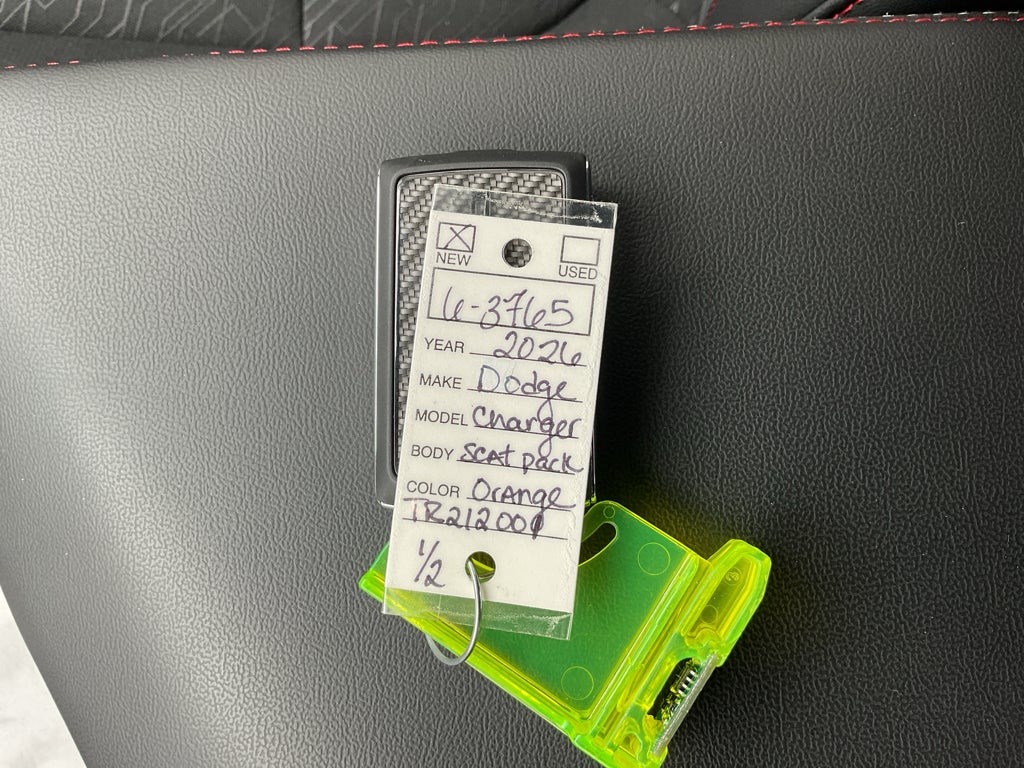 NEW USED
6-3765
YEAR 2026
MAKE Dodge
MODEL Charger
BODY Scat pack
COLOR Orange
TR212000
1/2